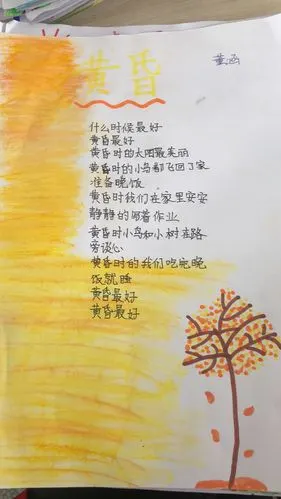 黄昏
董函
什么时候最好
黄昏最好
黄昏时的太阳最美丽
黄昏时的小鸟都飞回了家
准备晚饭
黄昏时我们在家里安安
静静的写着作业
黄昏时小鸟和小树在路
旁谈心
黄昏时的我们吃完晚
饭就睡
黄昏最好
黄昏最好